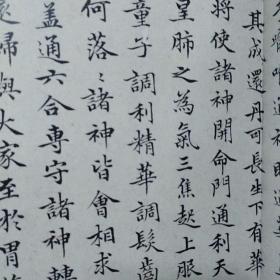 其成還丹可長生下有華
將使諸神開命門通利天
皇肺之為氣三焦起上服
童子調利精華調髮齒
何落〻諸神皆會相求
盖通六合專守諸神轉
歸與大家至於胃